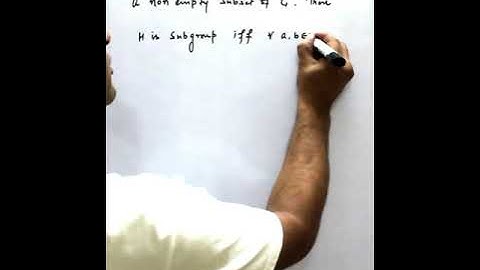 a non empty subset of G. Then
H is subgroup iff ∀ a,b∈